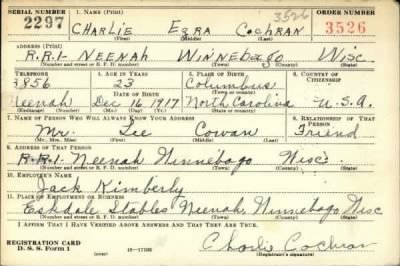 SERIAL NUMBER 1. NAME (Print) 3526 ORDER NUMBER
2297 CHARLIE EZRA COCHRAN 3526
(First) (Middle) (Last)
2. ADDRESS (Print)
R.R.1- NEENAH WINNEBAGO WISC
(Number and street or R. F. D. number) (Town) (County) (State)
3. TELEPHONE 4. AGE IN YEARS 5. PLACE OF BIRTH 6. COUNTRY OF CITIZENSHIP
3856 23 Columbus
DATE OF BIRTH (Town or county)
Neenah Dec 16, 1917 North Carolina U.S.A.
(Exchange) (Number) (Mo.) (Day) (Yr.) (State or country)
7. NAME OF PERSON WHO WILL ALWAYS KNOW YOUR ADDRESS 8. RELATIONSHIP OF THAT PERSON
Mr. Lee Cowan Friend
(Mr., Mrs., Miss) (First) (Middle) (Last)
9. ADDRESS OF THAT PERSON
R.R.1- Neenah Winnebago Wisc.
(Number and street or R. F. D. number) (Town) (County) (State)
10. EMPLOYER'S NAME
Jack Kimberly
11. PLACE OF EMPLOYMENT OR BUSINESS
Eskdale Stables Neenah, Winnebago, Wisc
(Number and street or R. F. D. number) (Town) (County) (State)
I AFFIRM THAT I HAVE VERIFIED ABOVE ANSWERS AND THAT THEY ARE TRUE.
REGISTRATION CARD
D. S. S. Form 1 (over) Charlie Cochran
(Registrant's signature)